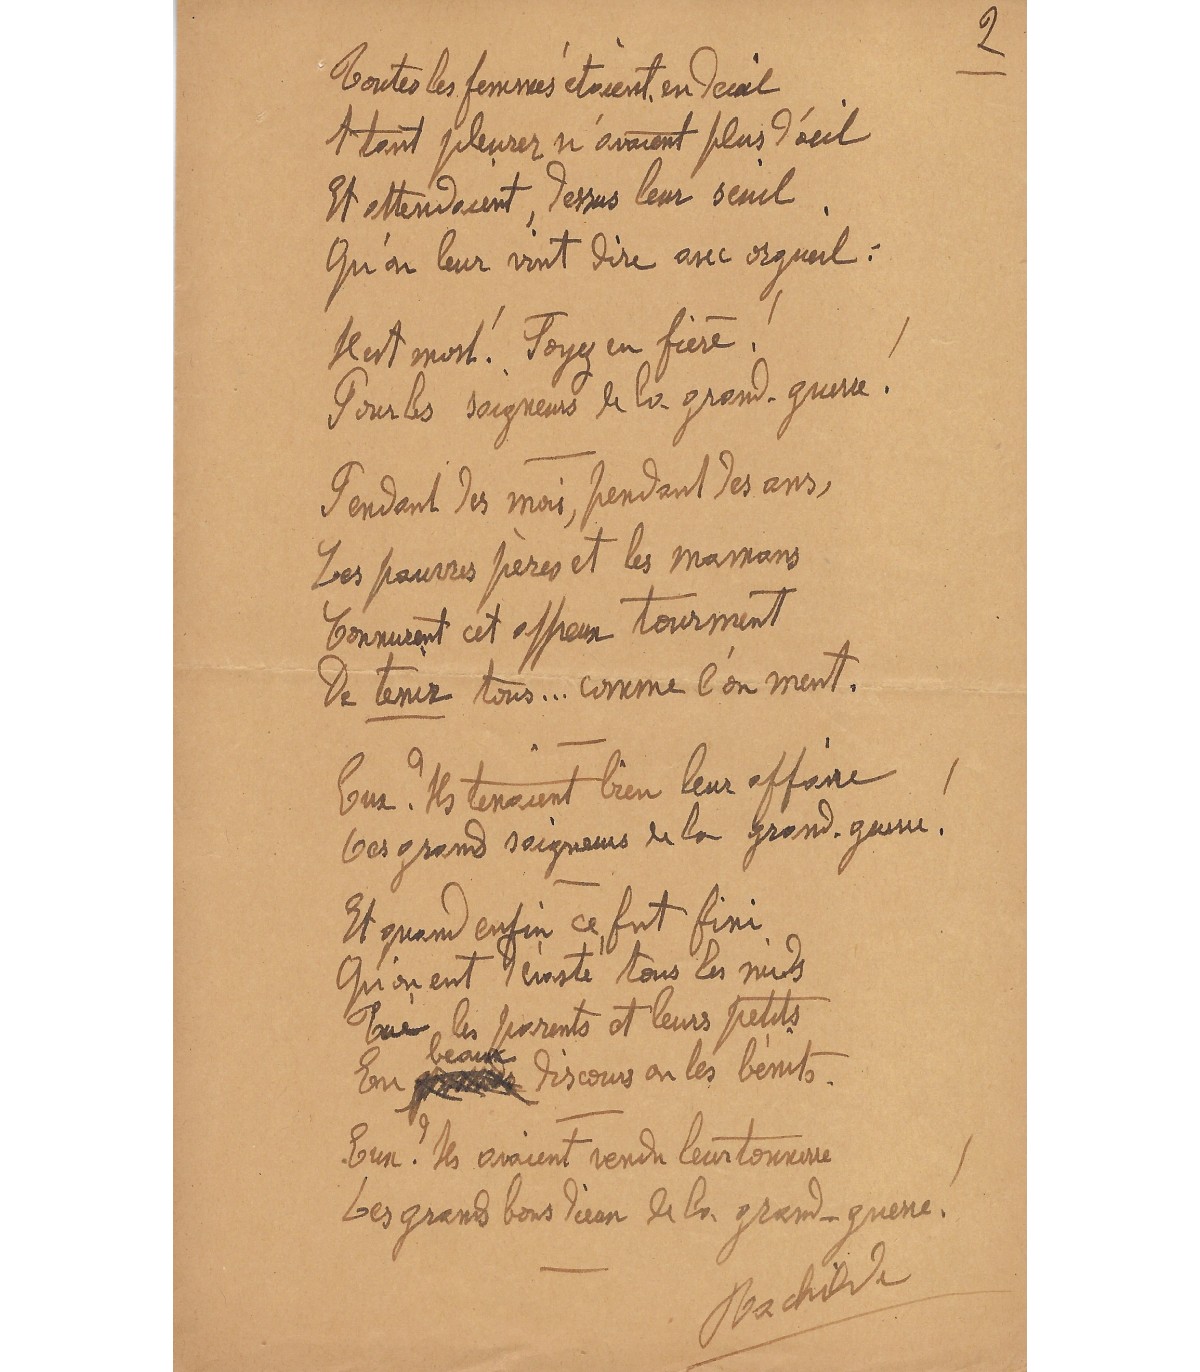 2
Toutes les femmes étaient en deuil
A tant pleurer n'avaient plus d'œil
Et attendaient, dessus leur seuil
Qu'on leur vint dire avec orgueil :
Il est mort ! Soyez en fière !
Pour les saigneurs de la grand-guerre !
Pendant des mois, pendant des ans,
Les pauvres pères et les mamans
Connurent cet affreux tourment
De tenir tous... comme l'on ment.
Eux ? Ils tenaient bien leur affaire
Les grand saigneurs de la grand-guerre !
Et quand enfin ce fut fini
Qu'on eut dévasté tous les nids
Tué les parents et leurs petits
En beaux discours on les bénits.
Eux ? Ils avaient vendu leur tonnerre
Les grands bons dieux de la grand-guerre !
Rachilde